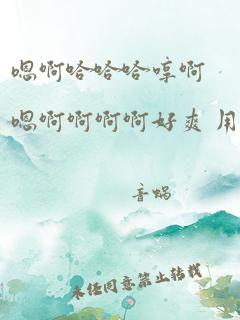 嗯啊哈哈哈哼啊
嗯啊啊啊啊好爽 用
音蜗
未经同意禁止转载